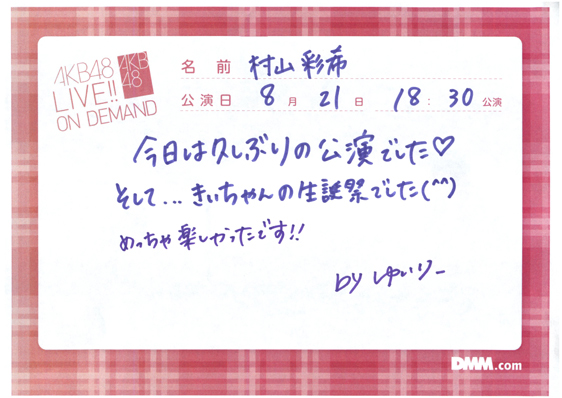 AKB48
LIVE!!
ON DEMAND
AKB
48
名前 村山彩希
公演日 8月21日 18:30公演
今日は久しぶりの公演でした♡
そして...きぃちゃんの生誕祭でした(^^)
めっちゃ楽しかったです!!
by ゆいりー
DMM.com